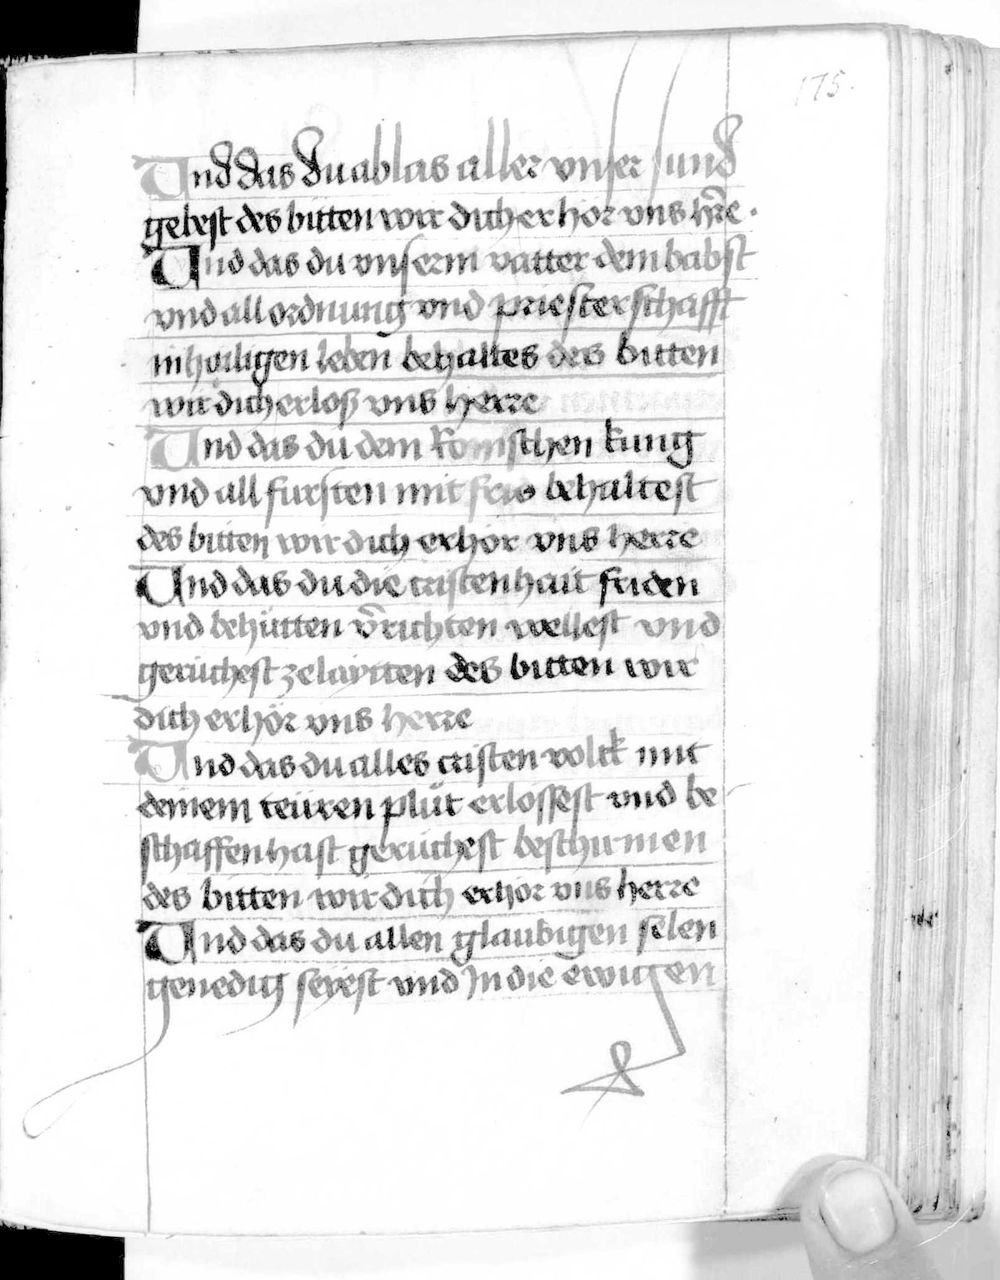 175.
Und das du ablas aller vnser sund
gebest des bitten wir dich erhor vns hr̄e.
Und das du vnserm vatter dem babst
vnd all ordnung vnd priesterschafft
in hailigen leben behaltes des bitten
wir dich erloß vns herre
Und das du dem Romschen kung
vnd all fursten mit frid behaltest
des bitten wir dich erhor vns herre
Und das du die cristenhait friden
vnd behütten v̄richten wellest vnd
geruchest ze laytten des bitten wir
dich erhör vns herre
Und das du alles cristen volck mit
deinem teüren plůt erlossest vnd be
schaffen hast geruchest beschirmen
des bitten wir dich erhor vns herre
Und das du allen glaubigen selen
genedig seyest vnd In die ewigen